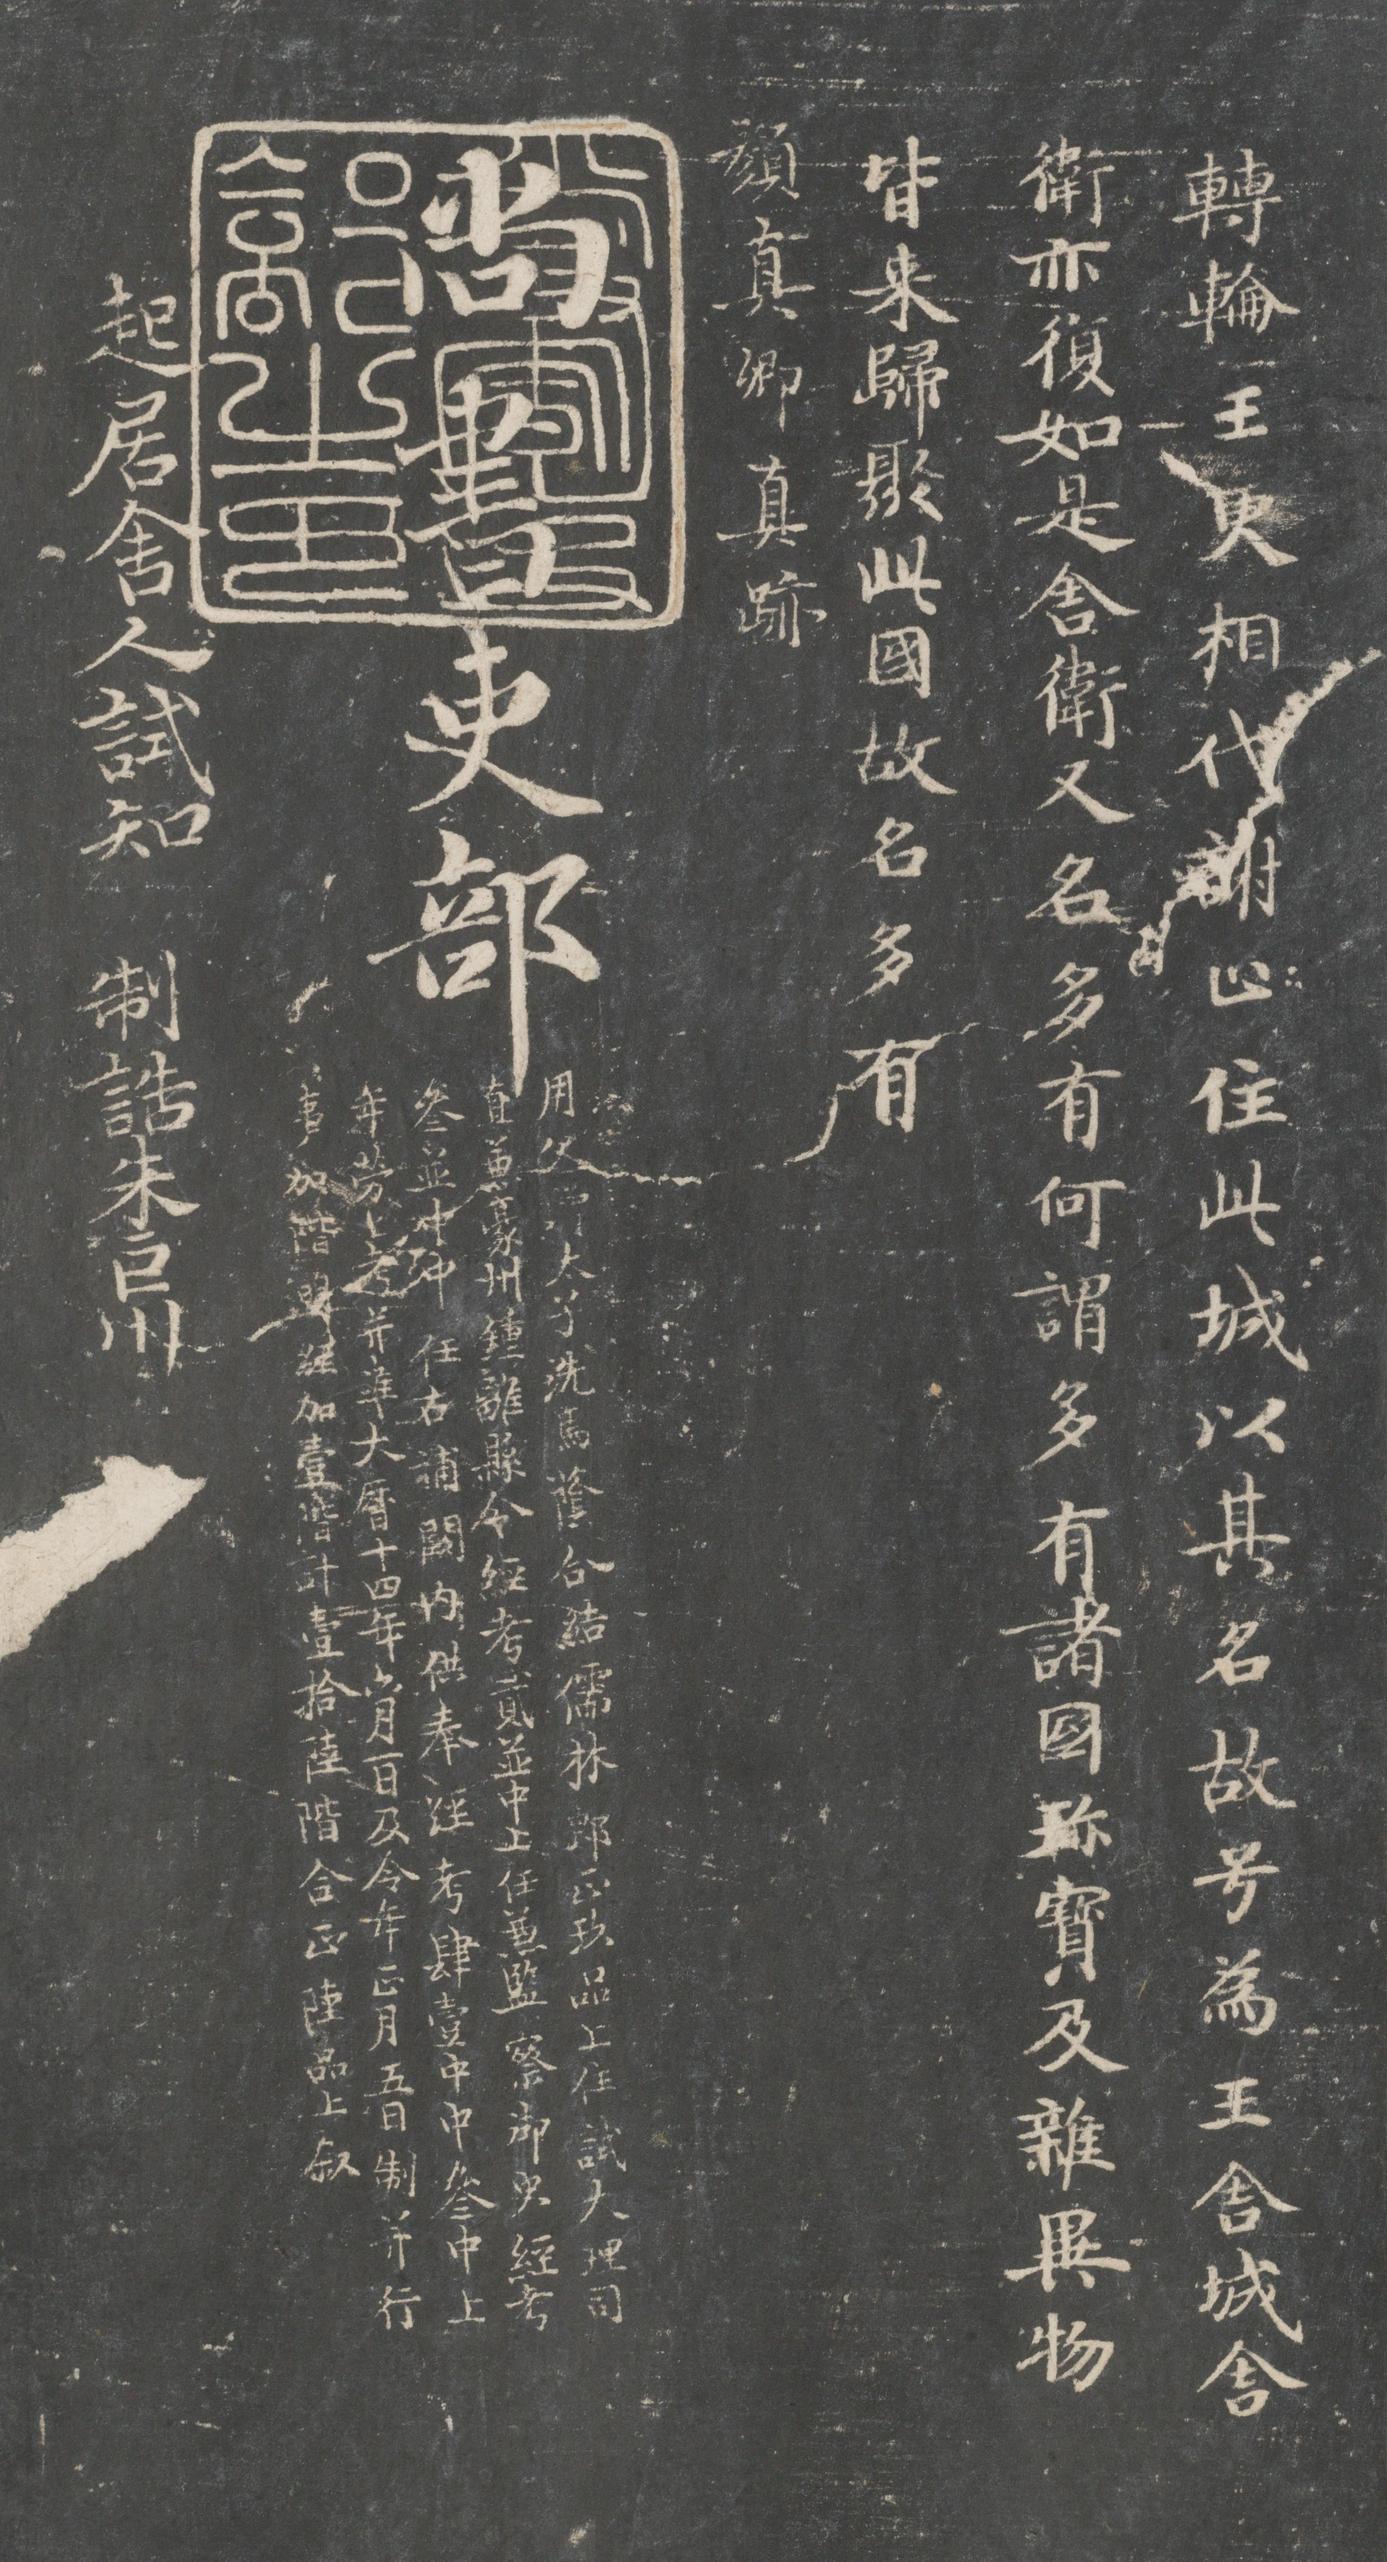 轉輪王更相代謝止住此城以其名故号為王舍城舍
衛亦復如是舍衛又名多有何謂多有諸國珎寶及雜異物
皆来歸聚此國故名多有
顏真卿真跡
尚書吏部
用父 太子洗馬蔭合結儒林郎正玖品上任試大理司
直兼豪州鍾離縣令經考貳並中上任兼監察御史經考
叁並中中任右補闕内供奉經考肆壹中中叁中上
年勞上考并准大曆十四年六月一日及今年正月五日制并行
事加階 加壹階計壹拾陸階合正陸品上叙
起居舍人試知 制誥朱巨川